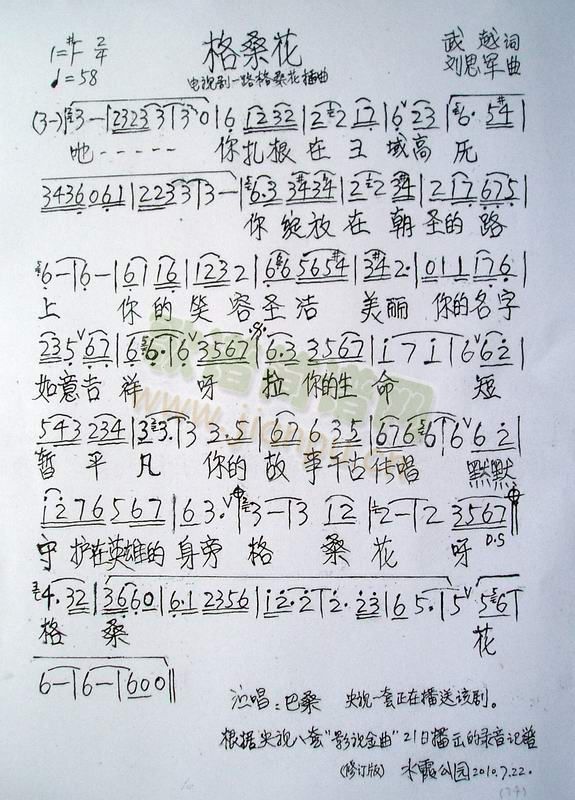 格桑花
1=#F 2/4
♩=58
武越词
刘思军曲
电视剧一路格桑花插曲
(3-)|3-|2323 33|3 0|6 12 32|2 2 17|6 23|6· 5#4|
吔 - - - - - 你扎根在王域高
3436 061|22 33|3-|6·3 #4334|2 2 3#4|2 17 675|
你绽放在朝圣的路
6-|6-|61 16|123 2|66 565#4|3#4 2·|011 176|
上 你的笑容圣洁 美丽 你的名字
235 67|6 6·|6 3567|6·3 3567|i 7 i|6 66 2|
如意吉祥 呀 拉你的生命 短
543 234|3 3·|3 3·2|6 6 35|676 6|6 6 2|
暂平凡 你的故事千古传唱 默默
i276 5 6 67|6 3·|3-|3 12|2-|2 3567|
守护在英雄的身旁 格桑花呀
D.S
4·32|36 60|6·1 2356|i2·2|2·23|6 5·|5 56|
格桑 花
6-|6-|600‖
演唱：巴桑 央视一套正在播送该剧。
根据央视八套"影视金曲"21日播出的录音记谱
(修订版) 水霞公园2010.7.22.